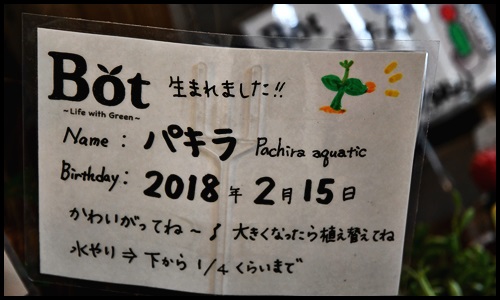 Bot 生まれました!!
~Life with Green~
Name : パキラ Pachira aquatic
Birthday : 2018年2月15日
かわいがってね~ 大きくなったら植え替えてね
水やり⇒下から1/4くらいまで